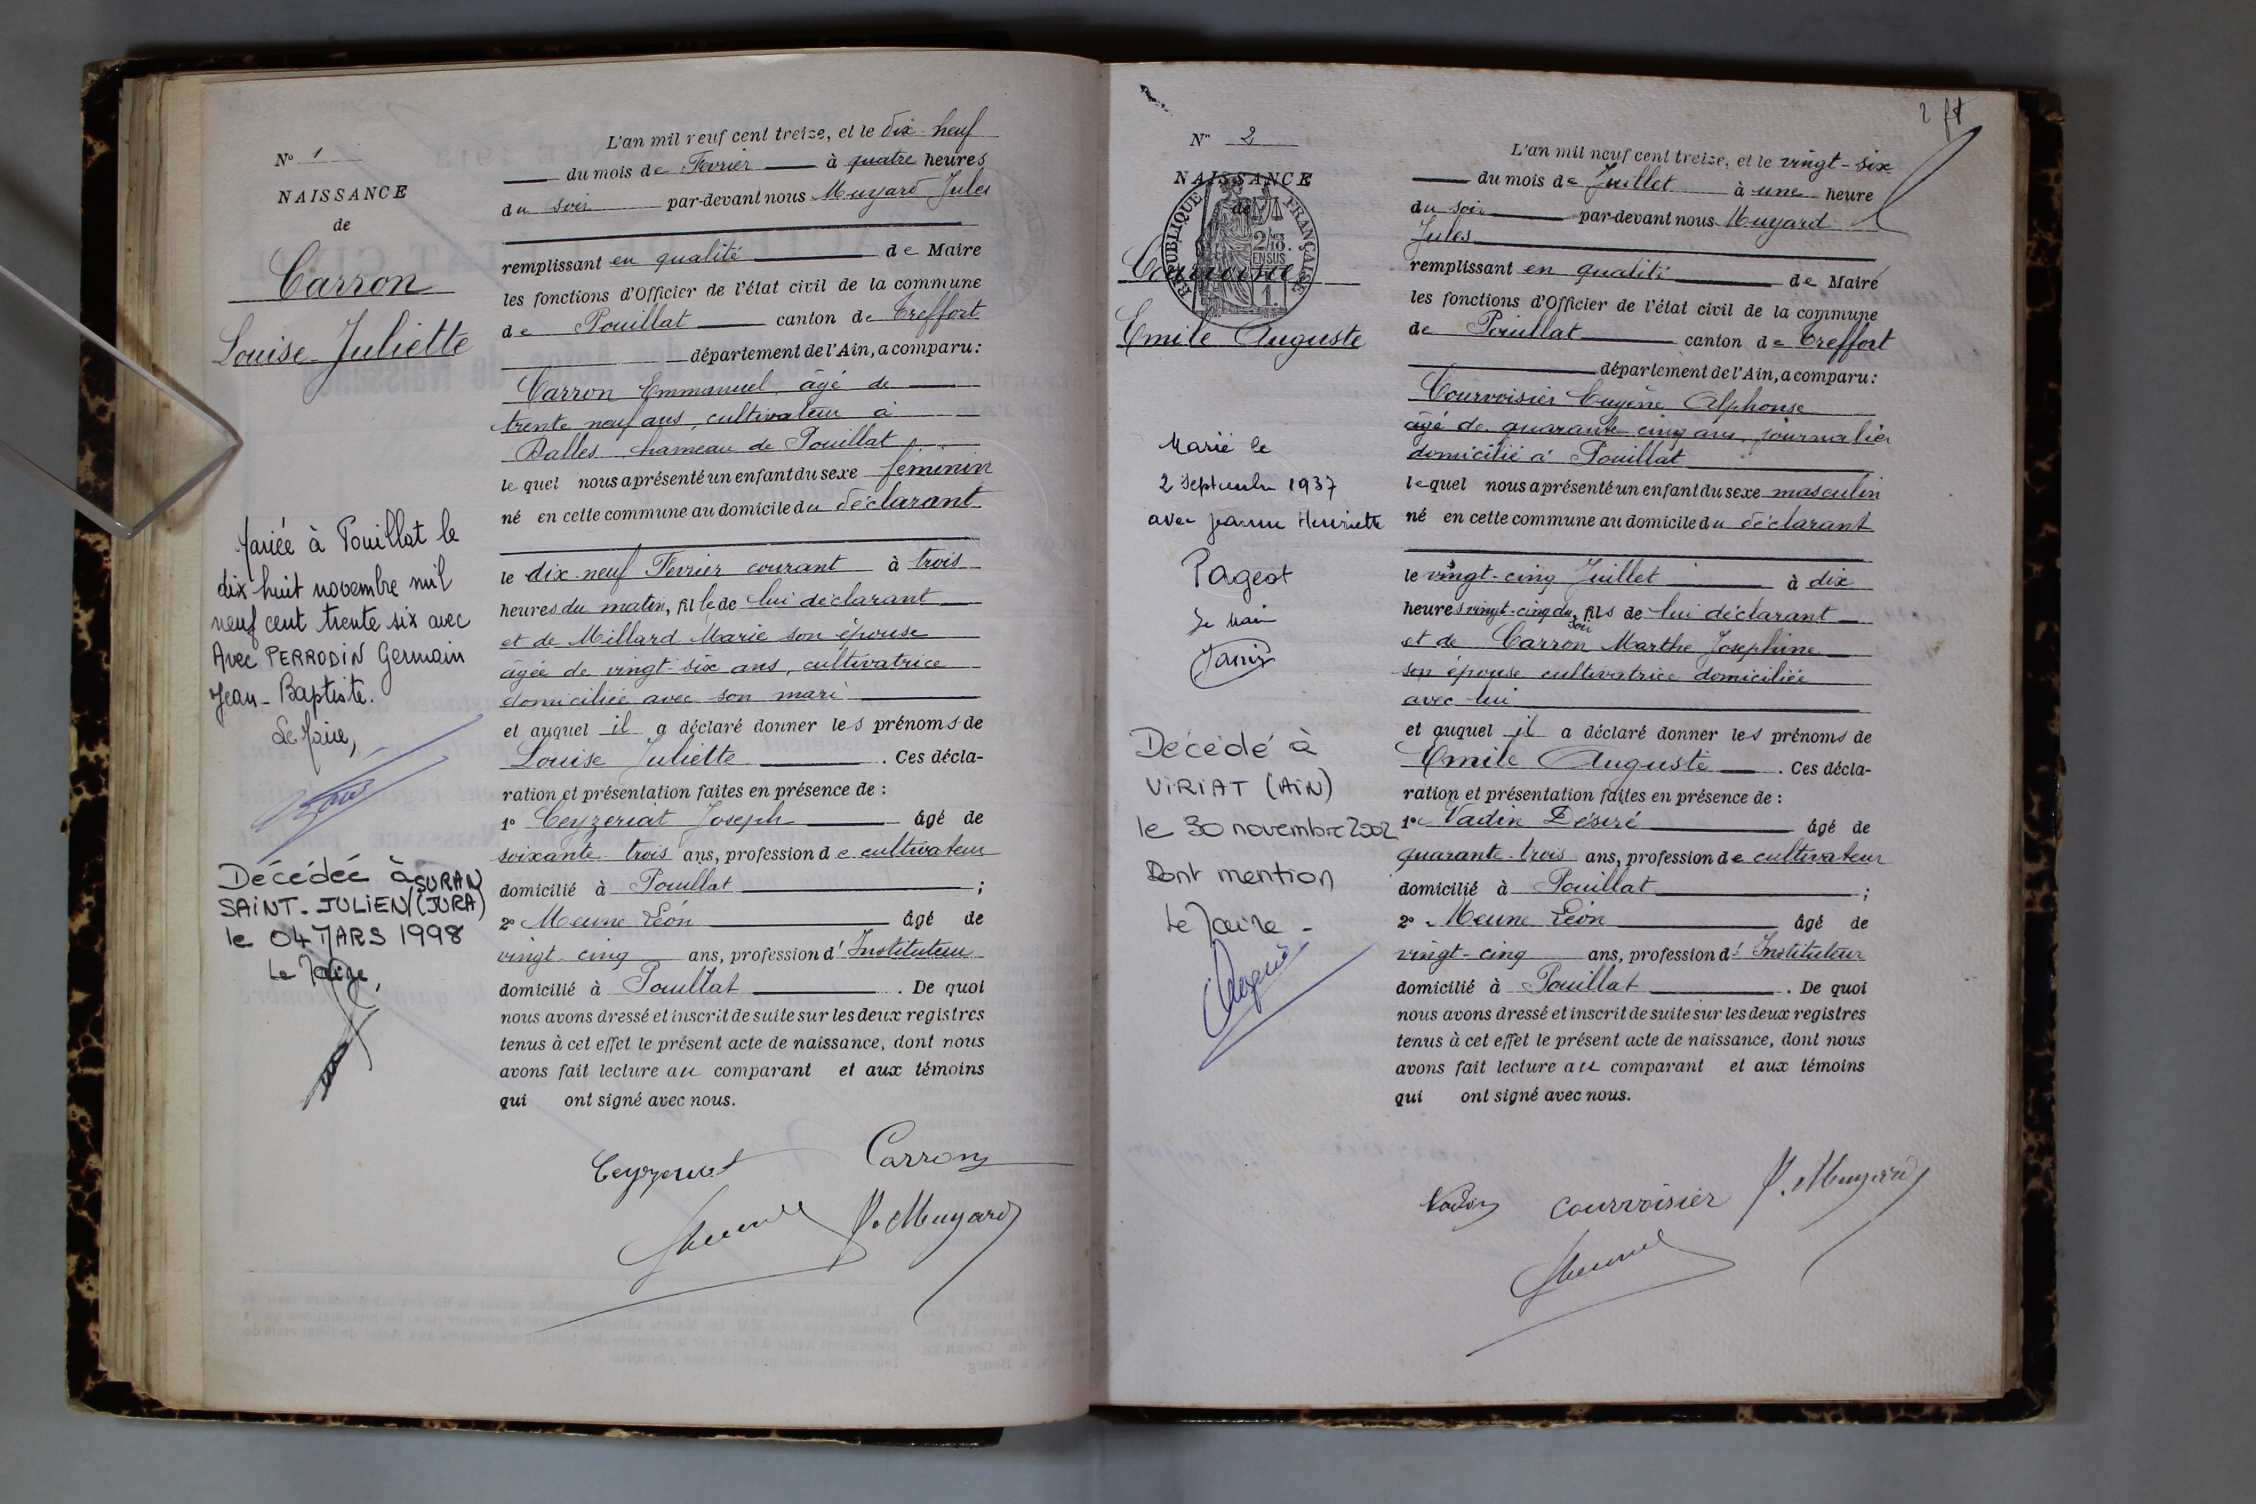 N° 1
NAISSANCE
de
Carron
Louise Juliette
Mariée à Pouillat le
dix huit novembre mil
neuf cent trente six avec
Avec PERRODIN Germain
Jean-Baptiste.
Le Maire,
Décédée à
SAINT-JULIEN/SURAN (JURA)
le 04 MARS 1998
Le Maire,
L'an mil neuf cent treize, et le dix-neuf
du mois de Fevrier à quatre heures
du soir par-devant nous Muyard Jules
remplissant en qualité de Maire
les fonctions d'Officier de l'état civil de la commune
de Pouillat canton de Treffort
département de l'Ain, a comparu:
Carron Emmanuel âgé de
trente neuf ans, cultivateur à
Dalles hameau de Pouillat
le quel nous a présenté un enfant du sexe féminin
né en cette commune au domicile du déclarant
le dix-neuf Fevrier courant à trois
heures du matin, fille de lui déclarant
et de Millard Marie son épouse
âgée de vingt-six ans, cultivatrice
domiciliée avec son mari
et auquel il a déclaré donner les prénoms de
Louise Juliette . Ces décla-
ration et présentation faites en présence de :
1° Ceyzeriat Joseph âgé de
soixante-trois ans, profession de cultivateur
domicilié à Pouillat ;
2° Meune Léon âgé de
vingt-cinq ans, profession d'Instituteur
domicilié à Pouillat . De quoi
nous avons dressé et inscrit de suite sur les deux registres
tenus à cet effet le présent acte de naissance, dont nous
avons fait lecture au comparant et aux témoins
qui ont signé avec nous.
Ceyzeriat Carron
Meune J. Muyard
2
N° 2
NAISSANCE
de
RÉPUBLIQUE FRANÇAISE
Courvoisier
Emile Auguste
Marié le
2 Septembre 1937
avec Jeanne Henriette
Pageot
Le Maire
Décédé à
VIRIAT (AIN)
le 30 novembre 2002
Dont mention
Le Maire -
L'an mil neuf cent treize, et le vingt-six
du mois de Juillet à une heure
du soir par-devant nous Muyard
Jules
remplissant en qualité de Maire
les fonctions d'Officier de l'état civil de la commune
de Pouillat canton de Treffort
département de l'Ain, a comparu:
Courvoisier Eugène Alphonse
âgé de quarante cinq ans, journalier
domicilié à Pouillat
lequel nous a présenté un enfant du sexe masculin
né en cette commune au domicile du déclarant
le vingt-cinq Juillet à dix
heures vingt-cinq du soir, fils de lui déclarant
et de Carron Marthe Joséphine
son épouse cultivatrice domiciliée
avec lui
et auquel il a déclaré donner les prénoms de
Emile Auguste . Ces décla-
ration et présentation faites en présence de :
1° Vadin Désiré âgé de
quarante-trois ans, profession de cultivateur
domicilié à Pouillat ;
2° Meune Léon âgé de
vingt-cinq ans, profession d'Instituteur
domicilié à Pouillat . De quoi
nous avons dressé et inscrit de suite sur les deux registres
tenus à cet effet le présent acte de naissance, dont nous
avons fait lecture au comparant et aux témoins
qui ont signé avec nous.
Vadin courvoisier J. Muyard
Meune